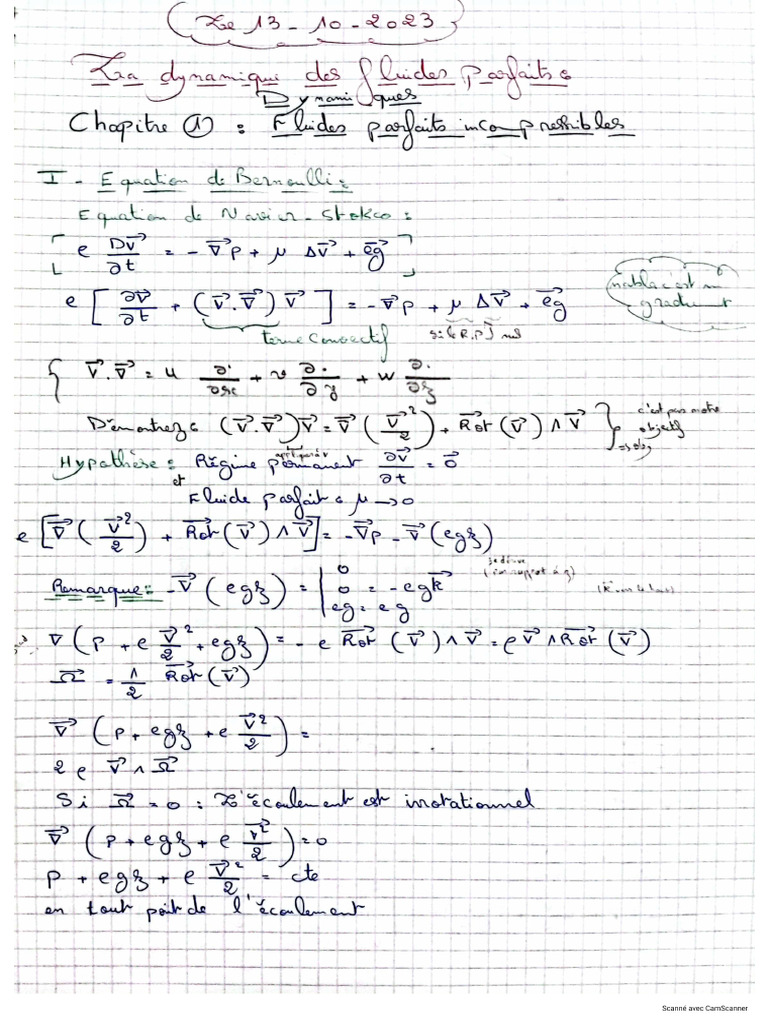 Le 13-10-2023
La dynamique des fluides parfaits
Dynamiques
Chapitre ① : Fluides parfaits incompressibles
I - Equation de Bernoulli :
Equation de Navier-Stokes :
[ρ Dv⃗/∂t = -∇⃗p + μ Δv⃗ + ρg⃗]
ρ[∂v⃗/∂t + (v⃗.∇⃗)v⃗] = -∇⃗p + μ Δv⃗ + ρg⃗
nabla c'est un gradient
terme convectif
{ v⃗.∇⃗ = u ∂./∂x + v ∂./∂y + w ∂./∂z
Démontrez (v⃗.∇⃗)v⃗ = ∇⃗(v⃗²/2) + Rot⃗(v⃗) ∧ v⃗
c'est pas notre objectif
Hypothèse : Régime permanent ∂v⃗/∂t = 0⃗
et
Fluide parfait μ → 0
ρ[∇⃗(v⃗²/2) + Rot⃗(v⃗) ∧ v⃗] = -∇⃗p - ∇⃗(ρgz)
Remarque : -∇⃗(ρgz) = | 0 0 ρg = ρg = -ρgk⃗
∇(p + ρ v⃗²/2 + ρgz) = -ρ Rot⃗(v⃗) ∧ v⃗ = ρ v⃗ ∧ Rot⃗(v⃗)
Ω⃗ = 1/2 Rot⃗(v⃗)
∇⃗(p + ρgz + ρ v⃗²/2) =
2 ρ v⃗ ∧ Ω⃗
Si Ω⃗ = 0 : L'écoulement est irrotationnel
∇⃗(p + ρgz + ρ v⃗²/2) = 0
p + ρgz + ρ v⃗²/2 = cte
en tout point de l'écoulement
Scanné avec CamScanner